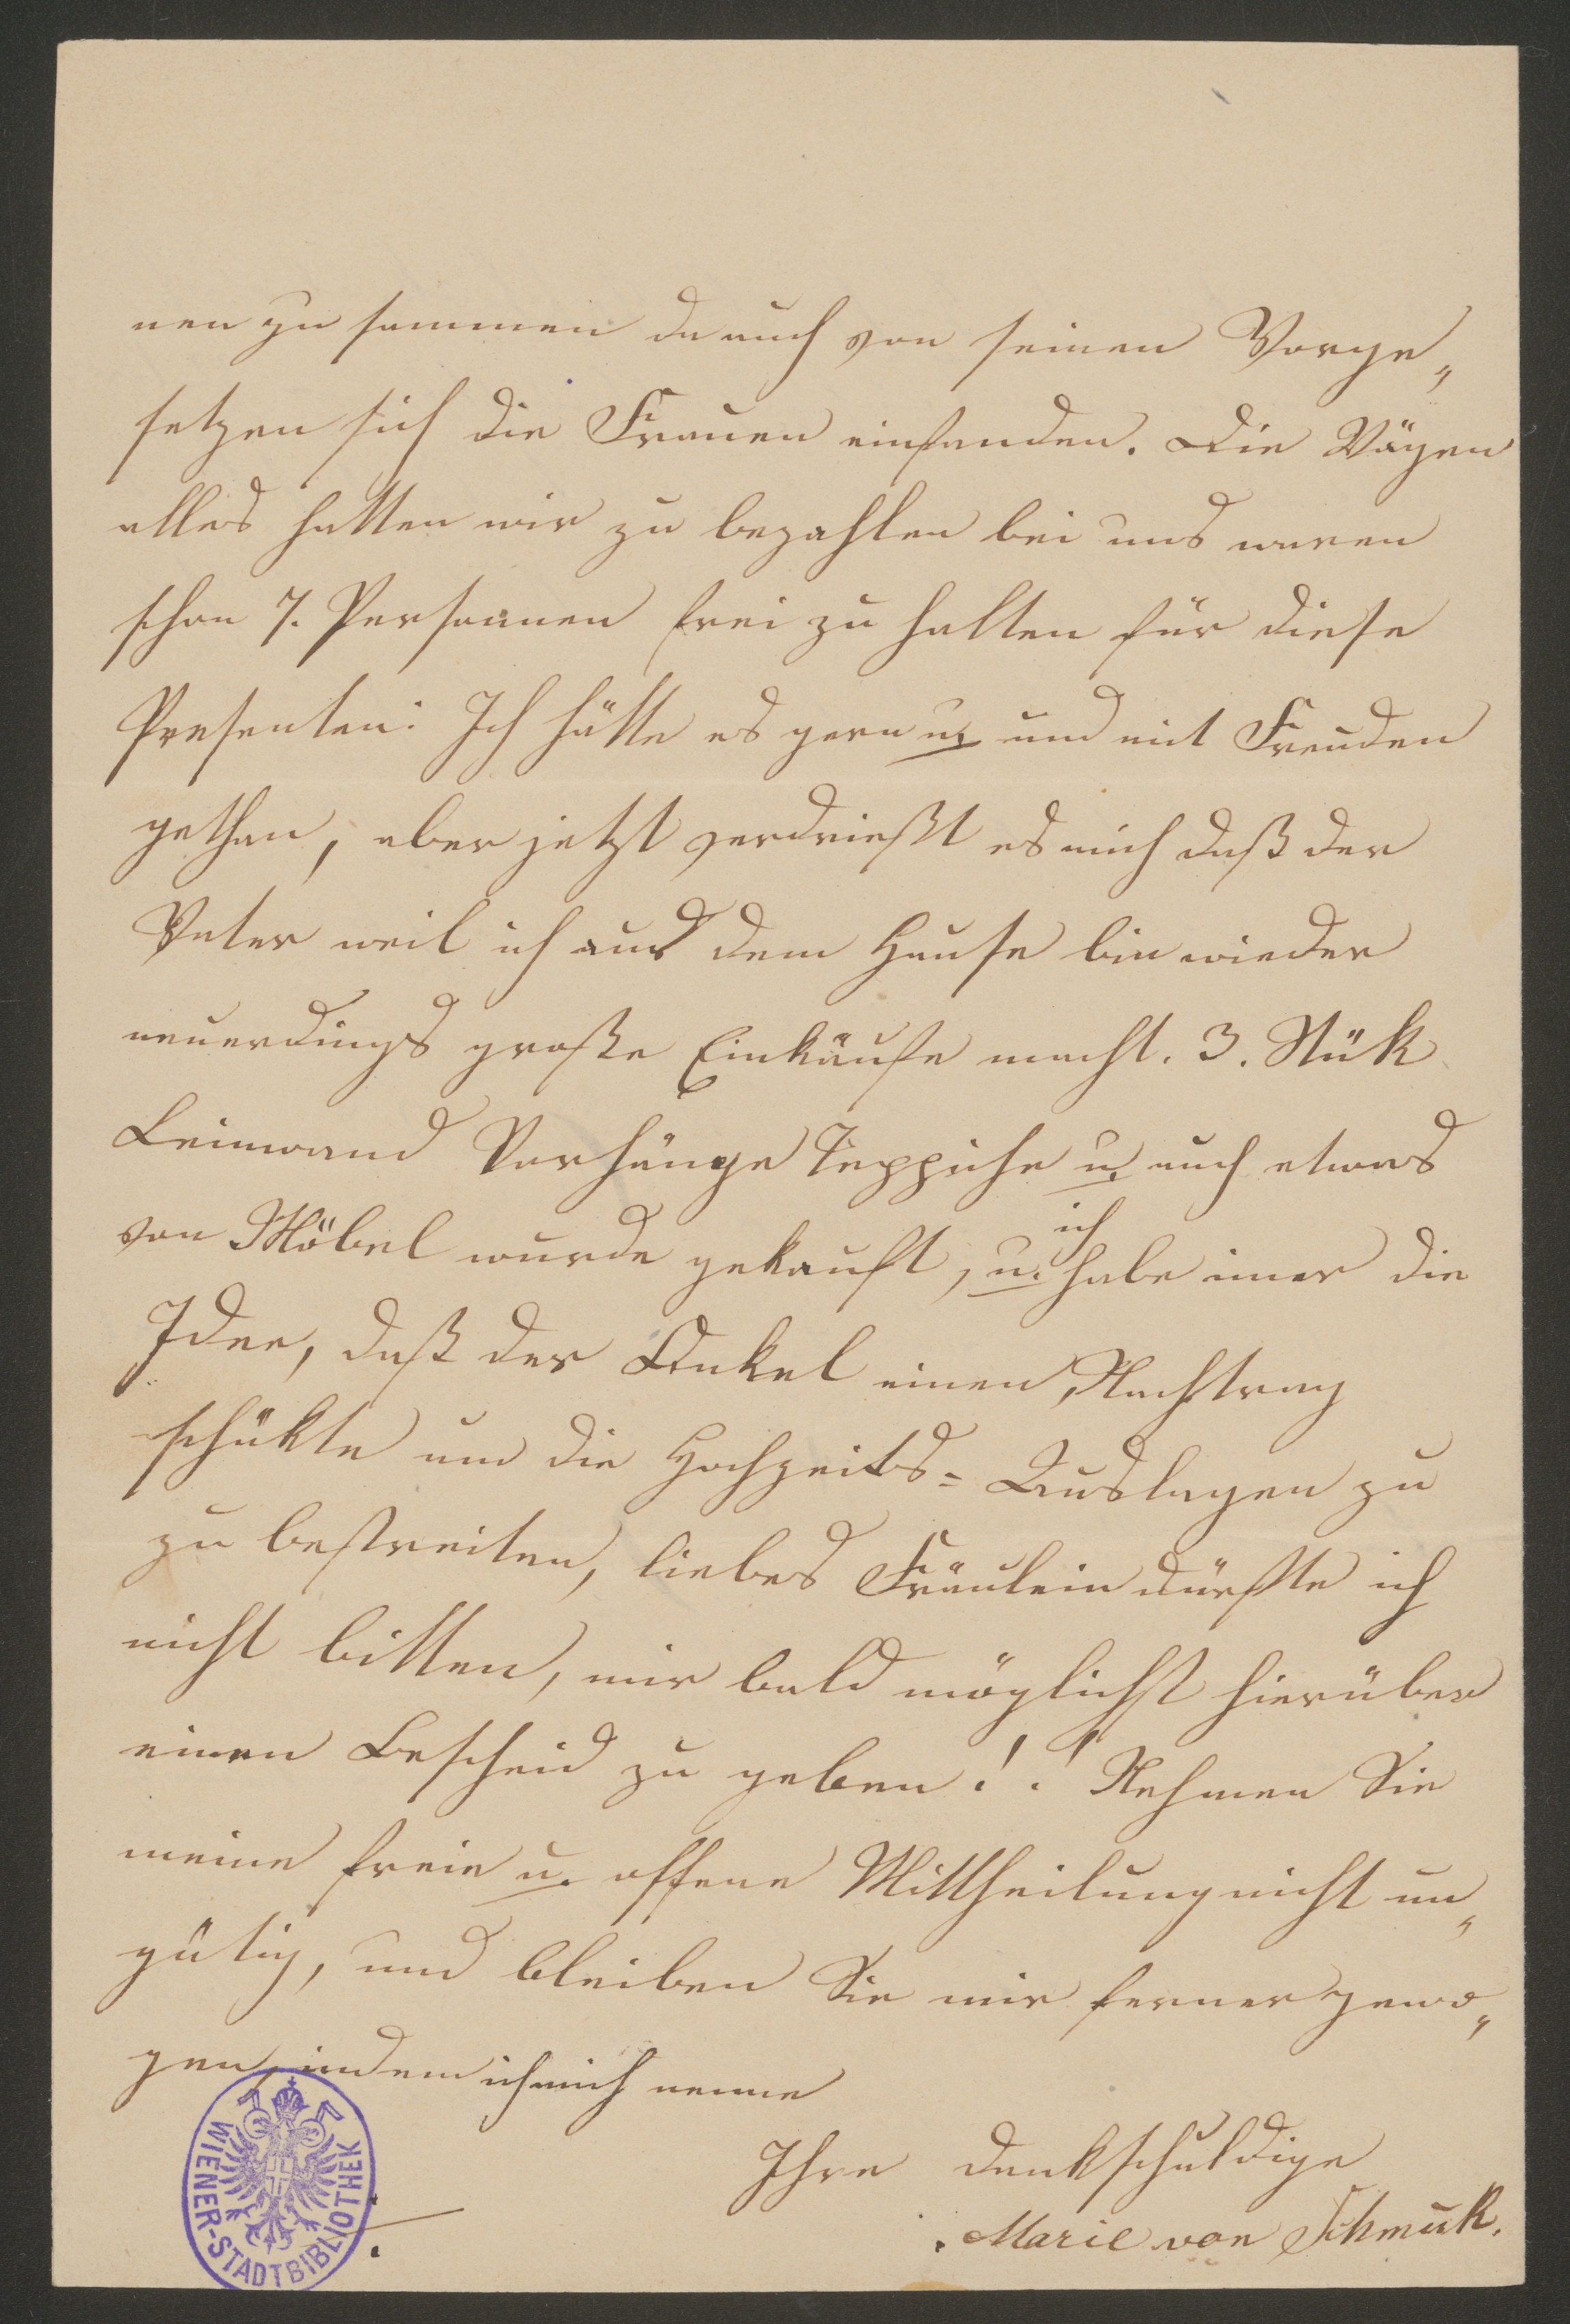 nen zu sammen da auch von seinen Vorge„
setzen sich die Frauen einfanden. Die Wägen
alles hatten wir zu bezahlen bei uns waren
schon 7. Personnen frei zu halten für diese
Presenten: Ich hätte es gern u. und mit Freuden
gethan, aber jetzt verdrießt es mich daß der
Vater weil ich aus dem Hause bin wieder
neuerdings große Einkäufe macht. 3. Stük
Leinwand Vorhänge Teppiche u. auch etwas
von Möbel wurde gekauft, u. ich habe imer die
Idee, daß der Onkel einen Nachtrag
schükte um die Hochzeits=Auslagen zu
zu bestreiten, liebes Fräulein dürfte ich
nicht bitten, mir bald möglichst hierüber
einen Bescheid zu geben!! Nehmen Sie
meine freie u. offene Mittheilung nicht un„
gütig, und bleiben Sie mir ferner gewo„
gen, indem ich mich nenne
Ihre dankschuldige
Marie von Schmuk.
WIENER-STADTBIBLIOTHEK